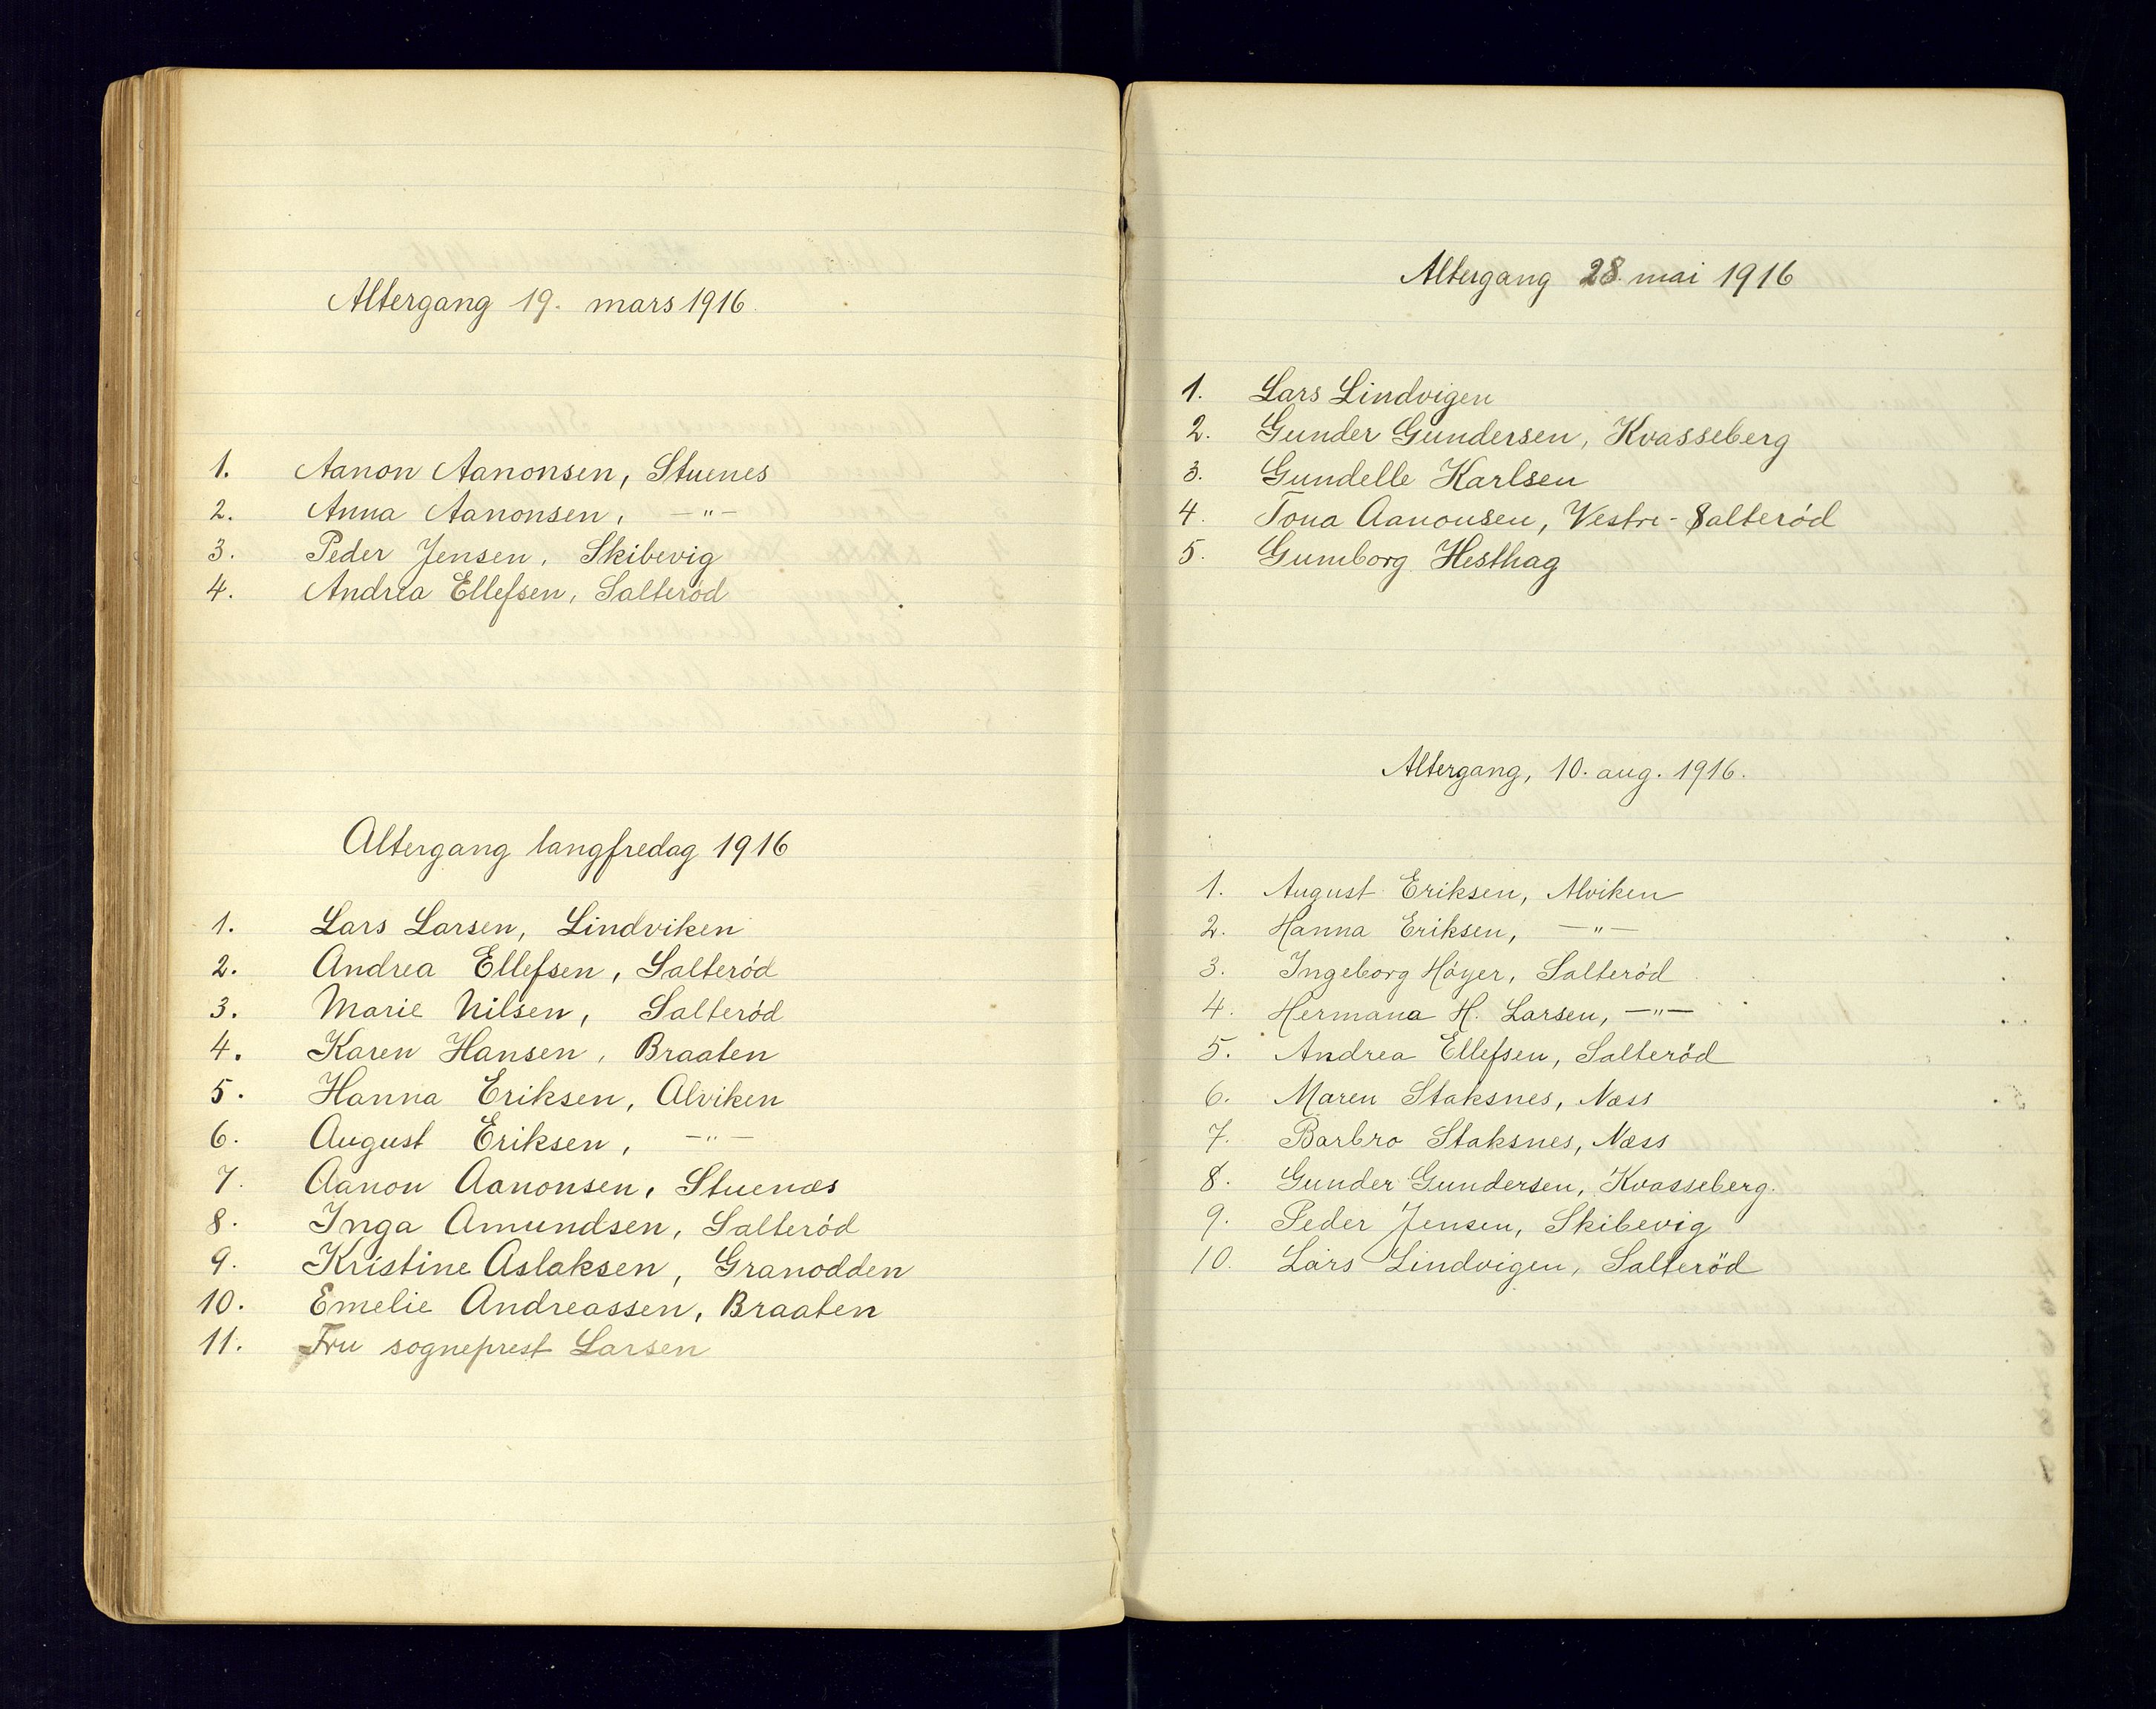 Altergang 19. mars 1916.
1. Aanon Aanonsen, Stuenes
2. Anna Aanonsen, —"—
3. Peder Jensen, Skibevig
4. Andrea Ellefsen, Salteród
Altergang langfredag 1916
1. Lars Larsen, Lindviken
2. Andrea Ellefsen, Salteród
3. Marie Nilsen, Salteród
4. Karen Hansen, Braaten
5. Hanna Eriksen, Alviken
6. August Eriksen, —"—
7. Aanon Aanonsen, Stuenæs
8. Inga Amundsen, Salteród
9. Kristine Aslaksen, Granodden
10. Emelie Andreassen, Braaten
11. Fru sogneprest Larsen
Altergang 28. mai 1916
1. Lars Lindvigen
2. Gunder Gundersen, Kvasseberg
3. Gundelle Karlsen
4. Tona Aanonsen, Vestre-Salteród
5. Gumborg Hesthag
Altergang, 10. aug. 1916.
1. August Eriksen, Alviken
2. Hanna Eriksen, —"—
3. Ingeborg Hóyer, Salteród
4. Hermana H. Larsen, —"—
5. Andrea Ellefsen, Salteröd
6. Maren Staksnes, Næss
7. Barbro Staksnes, Næss
8. Gunder Gundersen, Kvasseberg.
9. Peder Jensen, Skibevig
10. Lars Lindvigen, Salteröd